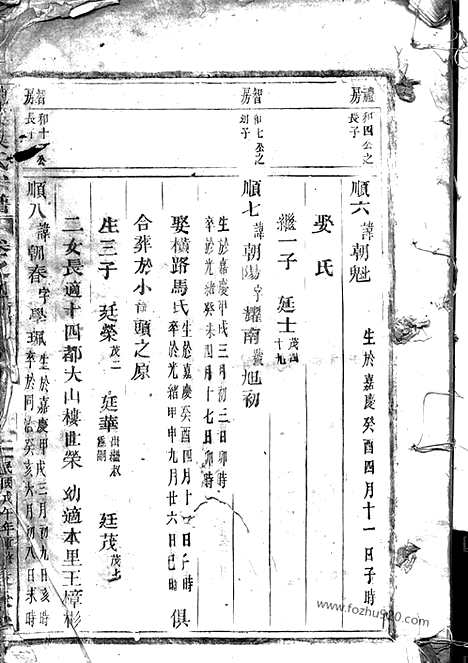 禮房 和四公之長子
順六 諱朝魁 生於嘉慶癸酉四月十一日子時
娶氏
繼一子 廷士 茂四十九
智房 和七公之子
順七 諱朝陽 字耀南 號旭初
生於嘉慶甲戌三月初三日卯時
卒於光緒癸未四月十七日卯時
娶橫路馬氏 生於嘉慶癸酉四月十 日子時
卒於光緒甲申九月廿六日巳時 俱
合葬於小 頭之原
生三子 廷榮 茂二 廷華 出繼叔 嗣 廷茂 茂十
二女長適十四都大山樓世榮 幼適本里王樟彬
智房 和十 公長子
順八 諱朝春 字學珮 生於嘉慶甲戌三月初九日亥時
卒於同治癸亥六月初八日未時
民國戊午年重
www.fozhu920.com